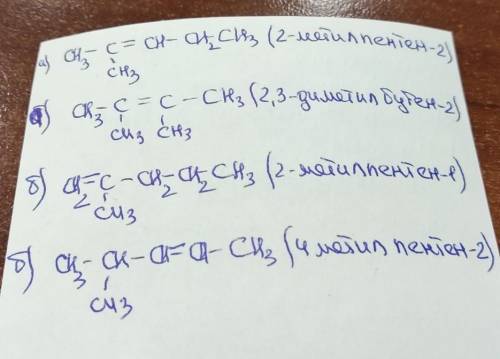 а) CH3 - C = CH - CH2CH3 (2-метилпентен-2)
CH3
б) CH3 - C = C - CH3 (2,3-диметилбутен-2)
CH3 CH3
б) CH2 = C - CH2 - CH2CH3 (2-метилпентен-1)
CH3
б) CH3 - CH - CH = CH - CH3 (4 метил пентен-2)
CH3